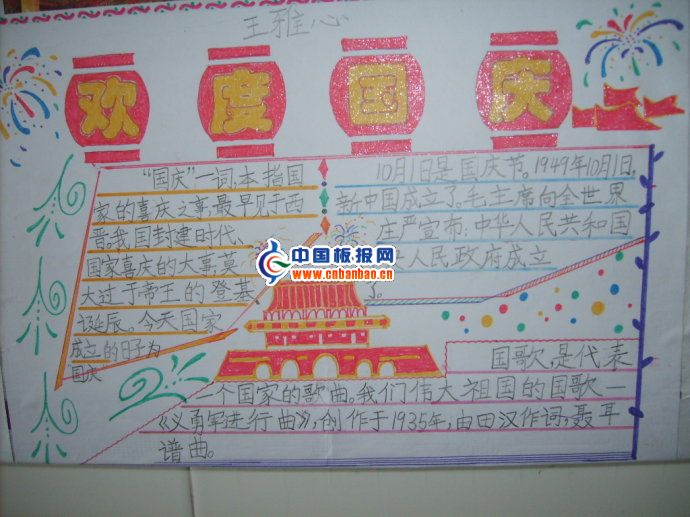 王雅心
欢度国庆
"国庆"一词,本指国
家的喜庆之事,最早见于西
晋。我国封建时代、
国家喜庆的大事,莫
大过于帝王的登基
诞辰。今天国家
成立的日子为
"国庆"
10月1日是国庆节。1949年10月1日,
新中国成立了。毛主席向全世界
庄严宣布:中华人民共和国
人民政府成立
了。
中国板报网
www.cnbanbao.cn
国歌,是代表
一个国家的歌曲。我们伟大祖国的国歌一
《义勇军进行曲》,创作于1935年,由田汉作词,聂耳
谱曲。